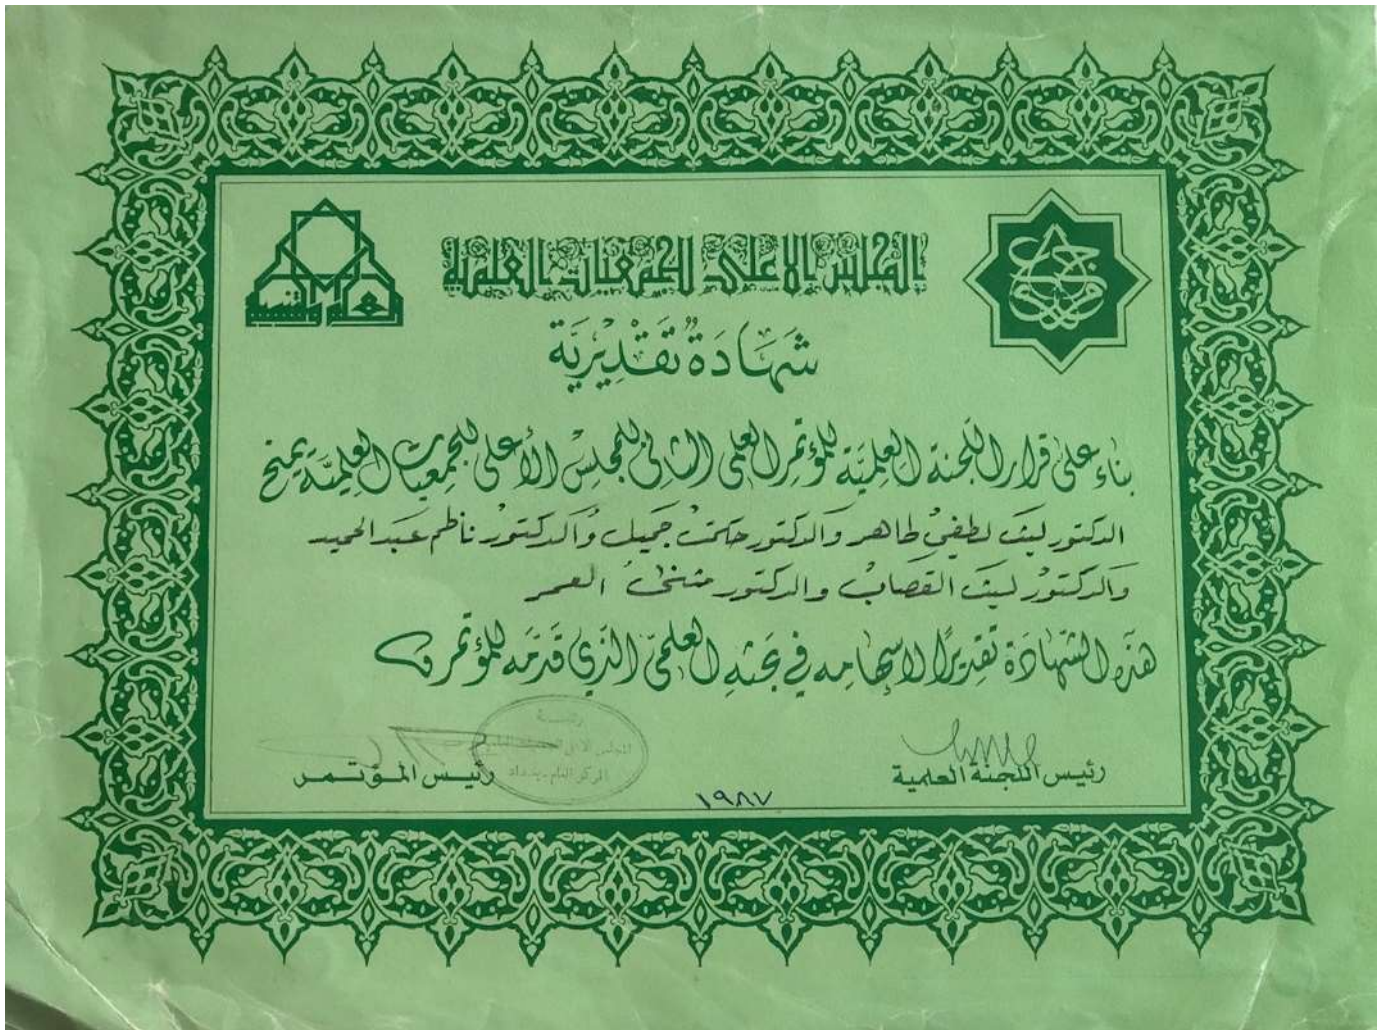 المجلس الاعلى للجمعيات العلمية
العلم والتنمية
شَهَادَةٌ تَقْدِيْرِيَّة
بناء على قرار اللجنة العلميّة للمؤتمر العلمي الثاني للمجلس الأعلى للجمعيات العلميّة يمنح
الدكتور ليث لطفي طاهر والدكتور حكمت جميل والدكتور ناظم عبد الحميد
والدكتور ليث القصاب والدكتور مثنى العمر
هذه الشهادة تقديرًا لإسهامه في بحثه العلميّ الذي قدّمه للمؤتمر
رئيس اللجنة العلمية
رئيس المؤتمر
رئاسة
المجلس الاعلى للجمعيات العلمية
المركز العام - بغداد
١٩٨٧